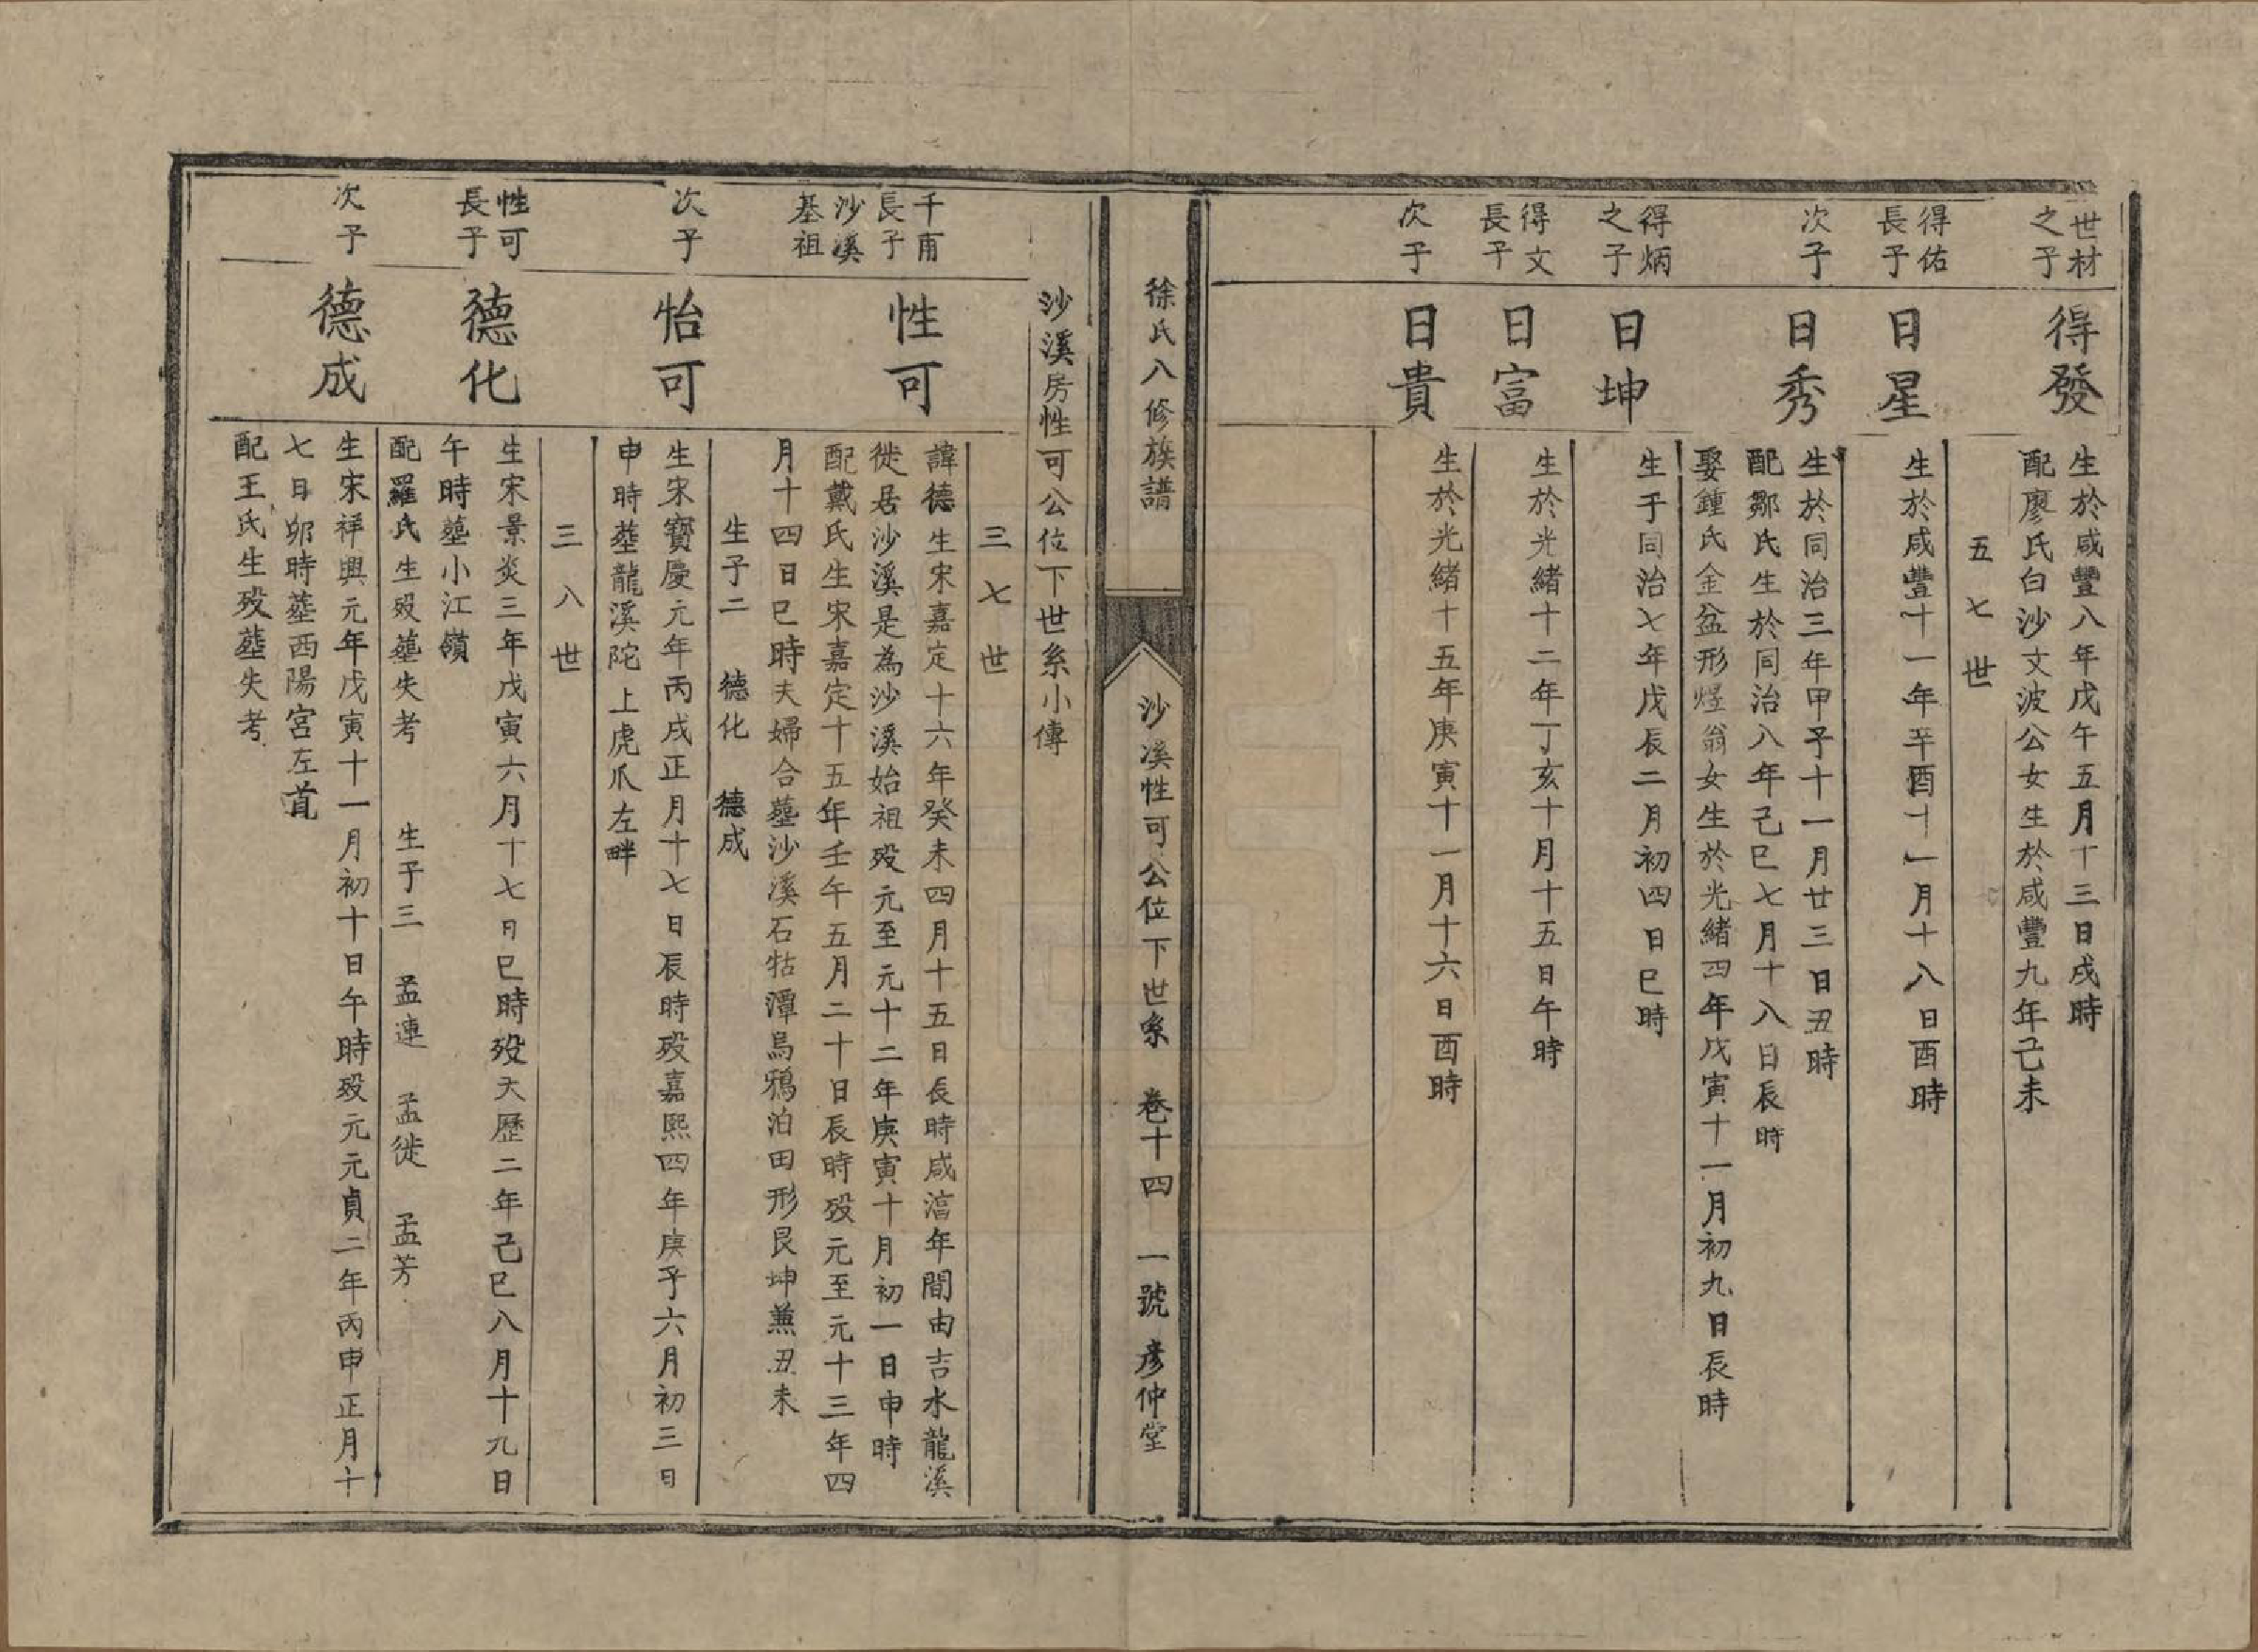 世材
之子
得發
生於咸豐八年戊午五月十三日戌時
配廖氏白沙文波公女生於咸豐九年己未
五七世
得佑
長子
日星
生於咸豐十一年辛酉十一月十八日酉時
次子
日秀
生於同治三年甲子十一月廿三日丑時
配鄒氏生於同治八年己巳七月十八日辰時
娶鍾氏金盆形煜翁女生於光緒四年戊寅十一月初九日辰時
得炳
之子
日坤
生于同治七年戊辰二月初四日巳時
得文
長子
日富
生於光緒十二年丁亥十月十五日午時
次子
日貴
生於光緒十五年庚寅十一月十六日酉時
徐氏八修族譜
沙溪性可公位下世系 卷十四 一號 彦仲堂
沙溪房性可公位下世系小傳
三七世
千甫
長子
沙溪
基祖
性可
諱德生宋嘉定十六年癸未四月十五日長時咸淳年間由吉水龍溪
徙居沙溪是為沙溪始祖歿元至元十二年庚寅十月初一日申時
配戴氏生宋嘉定十五年壬午五月二十日辰時歿元至元十三年四
月十四日巳時夫婦合墓沙溪石牯潭烏鴉泊田形艮坤兼丑未
生子二 德化 德成
次子
怡可
生宋寶慶元年丙戌正月十七日辰時歿嘉熙四年庚子六月初三日
申時塟龍溪陀上虎爪左畔
三八世
性可
長子
德化
生宋景炎三年戊寅六月十七日巳時歿大歷二年己巳八月十九日
午時塟小江嶺
配羅氏生歿塟失考 生子三 孟連 孟徙 孟芳
次子
德成
生宋祥興元年戊寅十一月初十日午時歿元元貞二年丙申正月十
七日卯時塟西陽宮左首
配王氏生歿塟失考